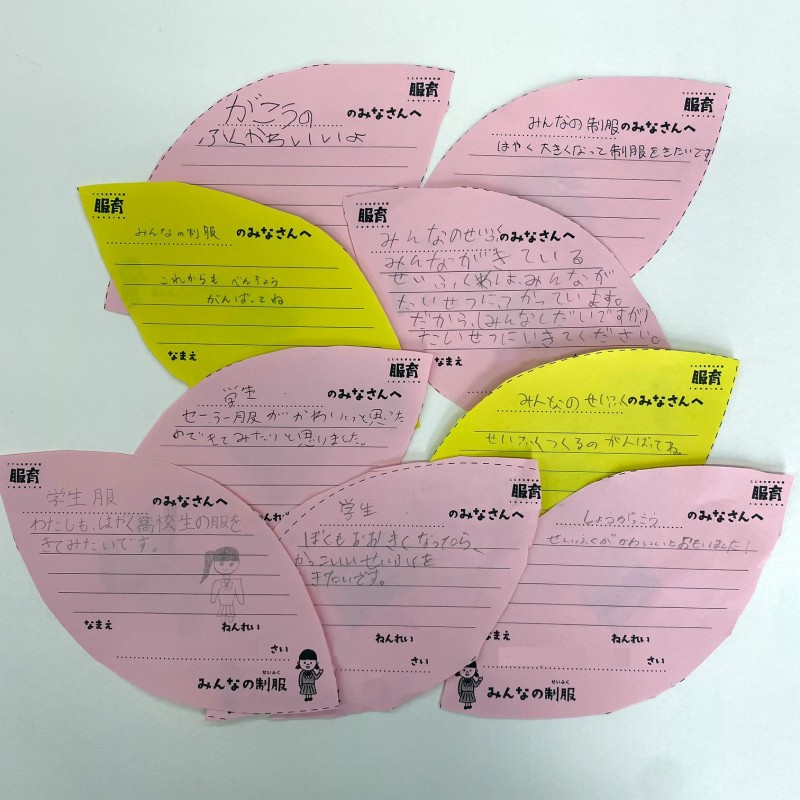 服育
がこうの のみなさんへ
ふくかわいいよ
服育
みんなの制服のみなさんへ
はやく大きくなって制服をきたいです
服育
みんなの制服 のみなさんへ
これからも べんきょう
がんばってね
なまえ
服育
みんなのせいふくのみなさんへ
みんながきている
せいふくは、みんなが
たいせつにつかっています。
だから、(みんなしだいですが)
たいせつにいきてください。
服育
学生 のみなさんへ
セーラー服がかわいいっと思った
のできてみたいと思いました。
ねんれい
服育
みんなのせいふくのみなさんへ
せいふくつくるのがんばってね。
服育
学生服 のみなさんへ
わたしも、はやく高校生の服を
きてみたいです。
なまえ ねんれい
さい
せいふく
みんなの制服
服育
学生 のみなさんへ
ぼくもおおきくなったら、
かっこいいせいふくを
きたいです。
ねんれい
さい
服育
しょうがっこう のみなさんへ
せいふくがかわいいとおもいました!
なまえ ねんれい
さい
せいふく
みんなの制服